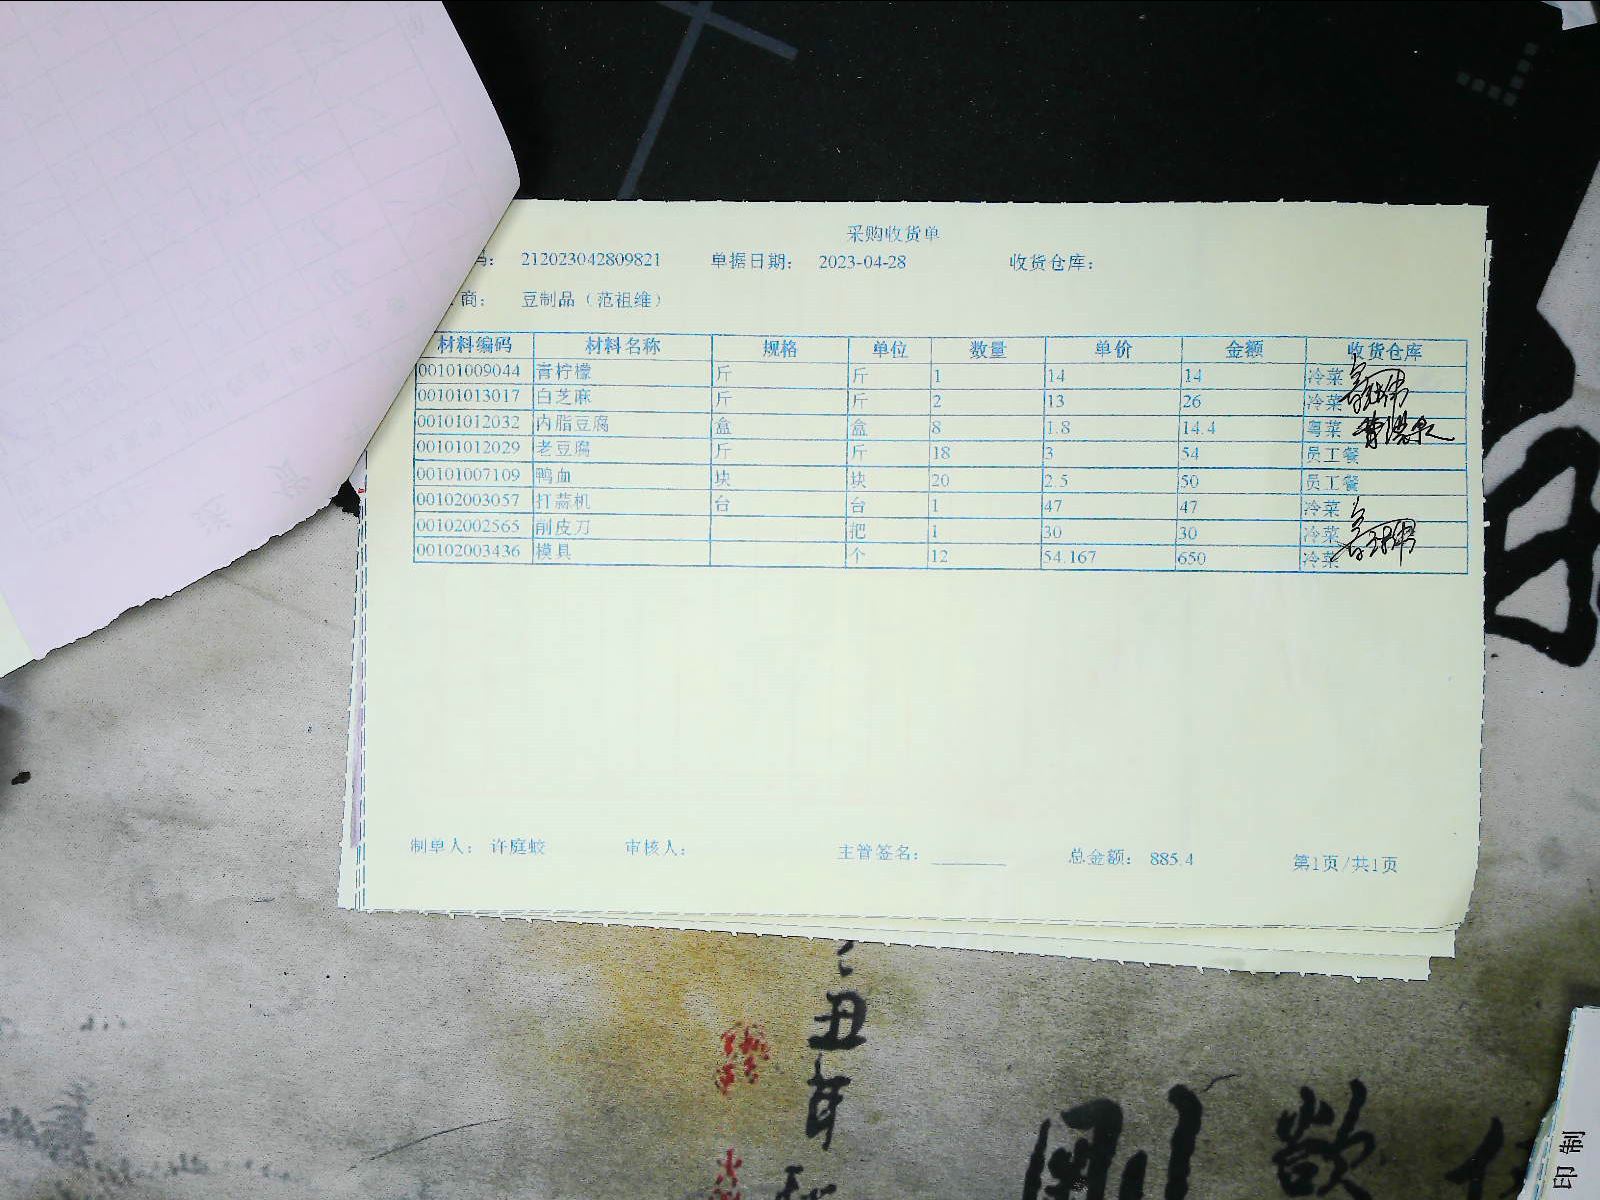 采购收货单
码： 212023042809821 单据日期： 2023-04-28 收货仓库：
商： 豆制品（范祖维）
材料编码 材料名称 规格 单位 数量 单价 金额 收货仓库
00101009044 青柠檬 斤 斤 1 14 14 冷菜
00101013017 白芝麻 斤 斤 2 13 26 冷菜
00101012032 内脂豆腐 盒 盒 8 1.8 14.4 粤菜
00101012029 老豆腐 斤 斤 18 3 54 员工餐
00101007109 鸭血 块 块 20 2.5 50 员工餐
00102003057 打蒜机 台 台 1 47 47 冷菜
00102002565 削皮刀 把 1 30 30 冷菜
00102003436 模具 个 12 54.167 650 冷菜
制单人： 许庭蛟 审核人： 主管签名： 总金额： 885.4 第1页/共1页
丑年
剛 欲
印制